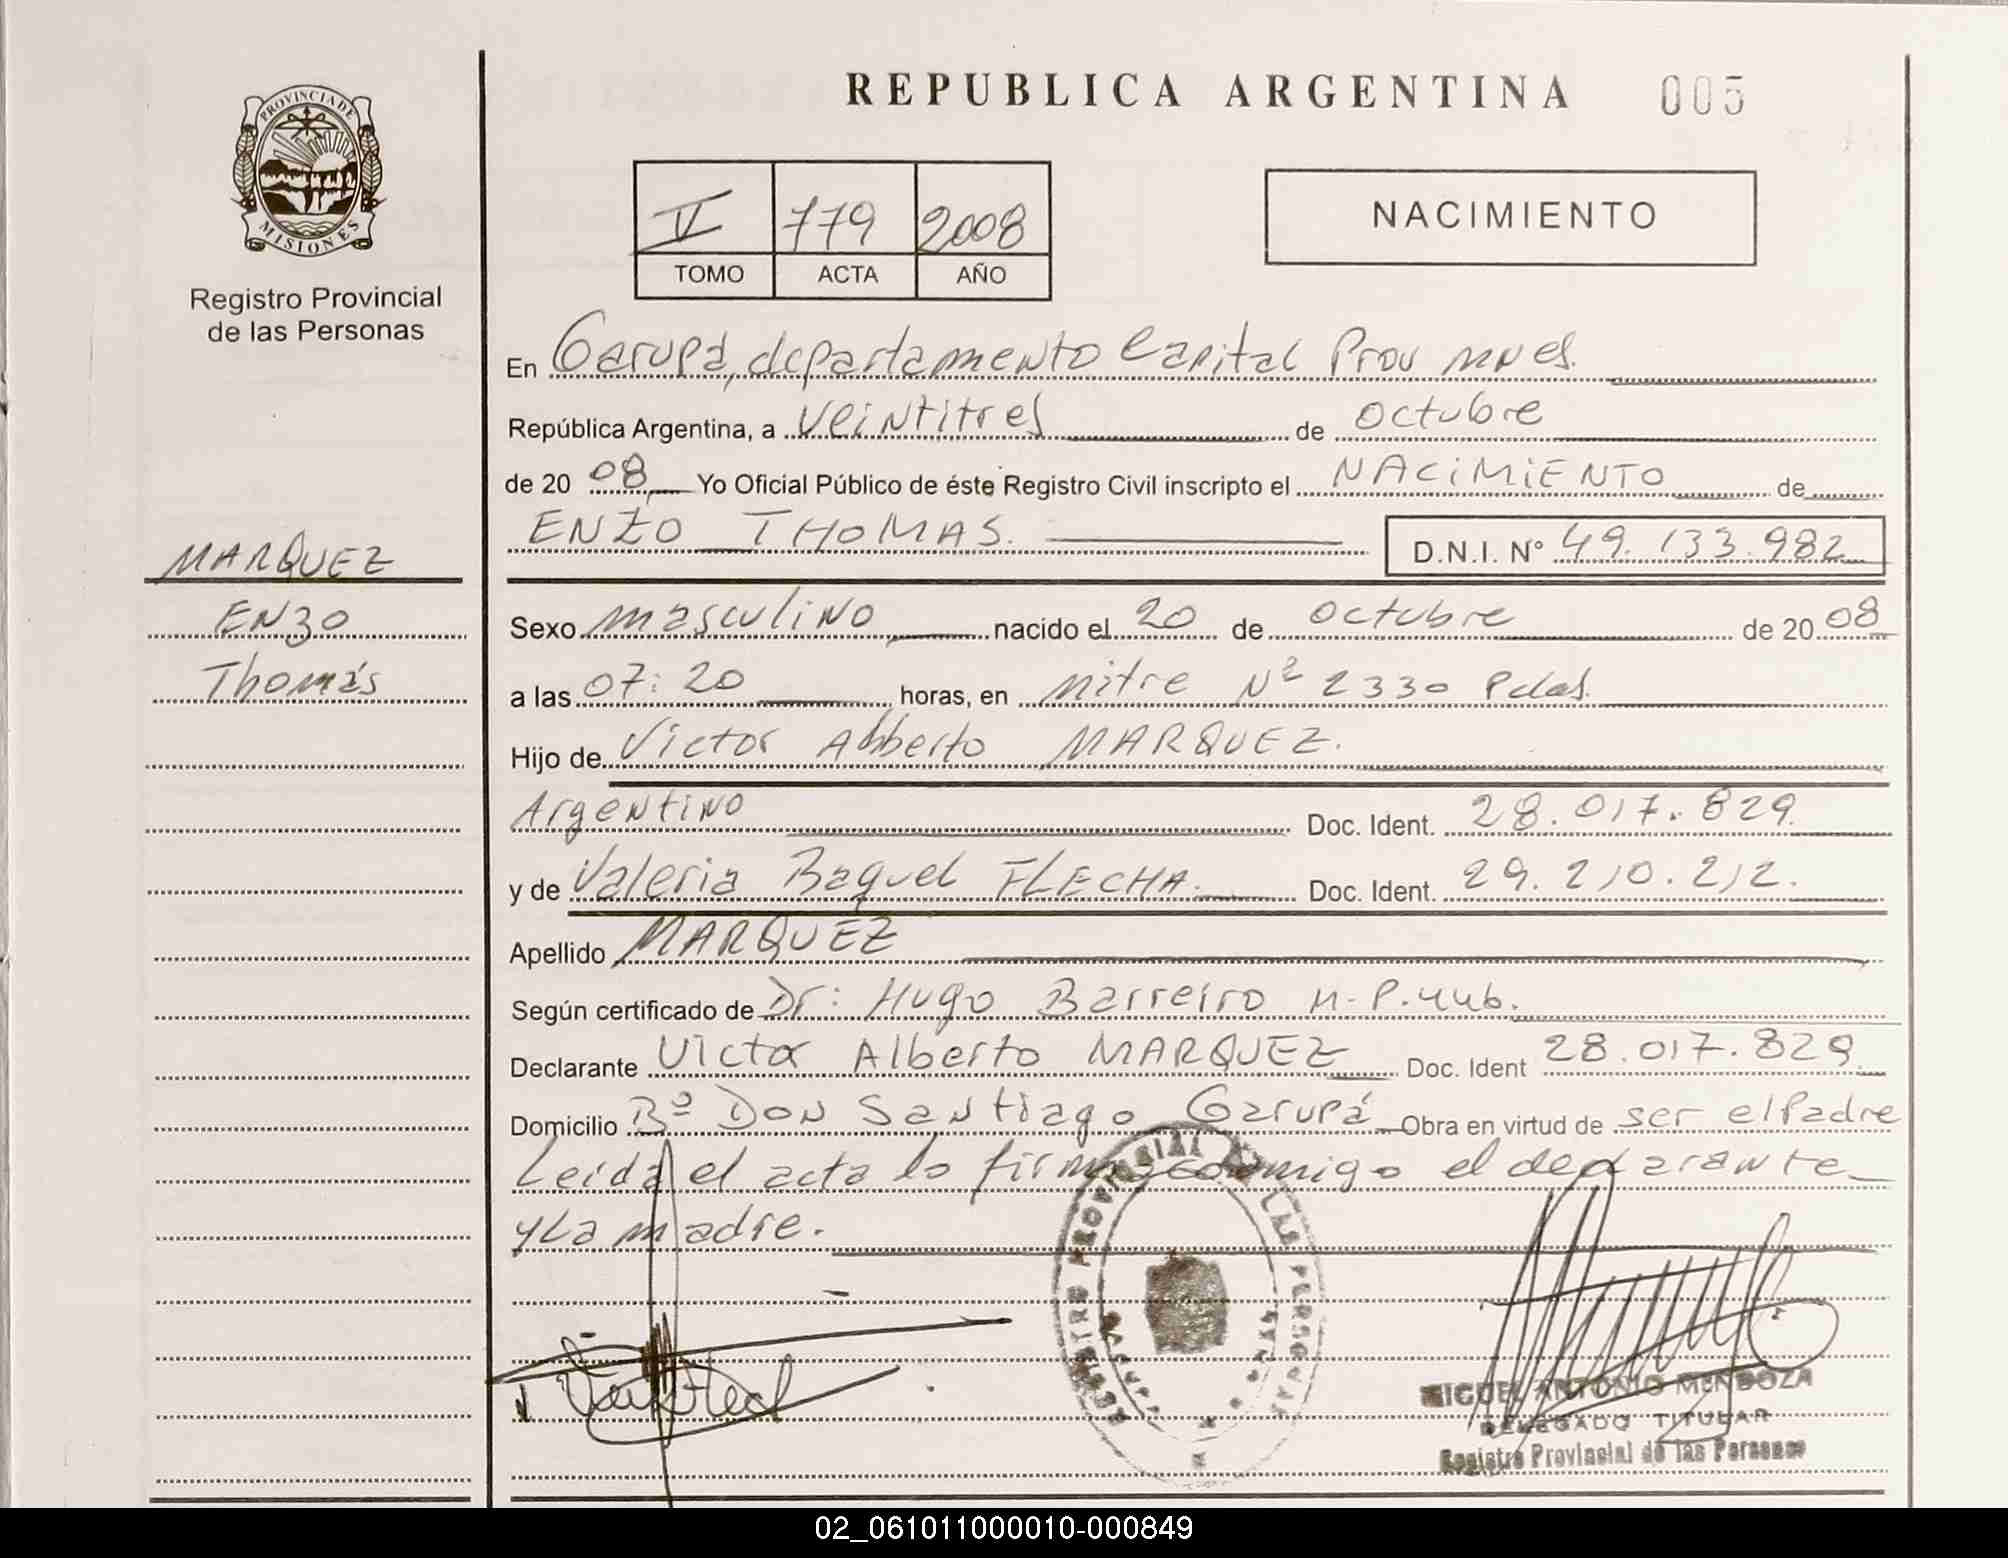 REPUBLICA ARGENTINA 005
PROVINCIA DE
MISIONES
Registro Provincial
de las Personas
V 779 2008
TOMO ACTA AÑO
NACIMIENTO
En Garupá, departamento Capital Prov mnes.
República Argentina, a veintitres de octubre
de 2008 Yo Oficial Público de éste Registro Civil inscripto el NACIMIENTO de
ENZO THOMAS. D.N.I. Nº 49.133.982
MARQUEZ
ENZO
Thomás
Sexo masculino nacido el 20 de octubre de 2008
a las 07:20 horas, en mitre Nº 2330 Pdas.
Hijo de Victor Alberto MARQUEZ.
Argentino Doc. Ident. 28.017.829
y de Valeria Raquel FLECHA. Doc. Ident. 29.210.212.
Apellido MARQUEZ
Según certificado de Dr: Hugo Barreiro M-P.446.
Declarante Victor Alberto MARQUEZ Doc. Ident 28.017.829
Domicilio Bº Don Santiago Garupá Obra en virtud de ser el Padre
Leída el acta lo firma conmigo el declarante
y La madre.
REGISTRO PROVINCIAL DE LAS PERSONAS
MIGUEL ANTONIO MENDOZA
DELEGADO TITULAR
Registro Provincial de las Personas
02_061011000010-000849